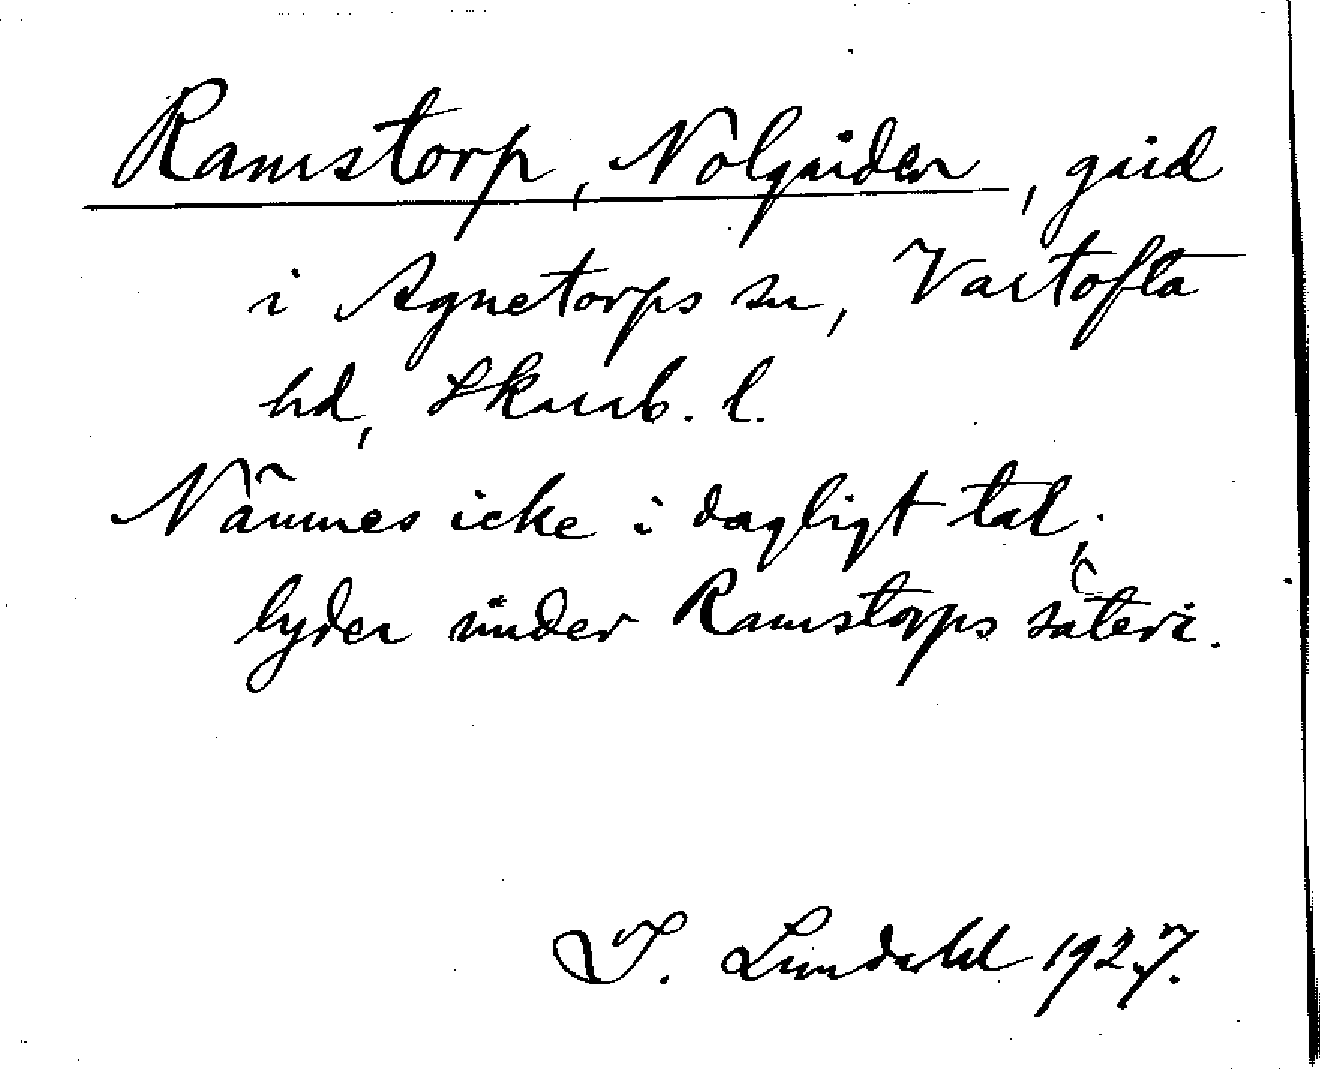 Ramstorp, Nolgården, gård
i Agnetorps sn, Vartofta
hd, Skarab. l.
Nämnes icke i dagligt tal;
lyder under Ramstorps säteri.
I. Lundahl 1927.